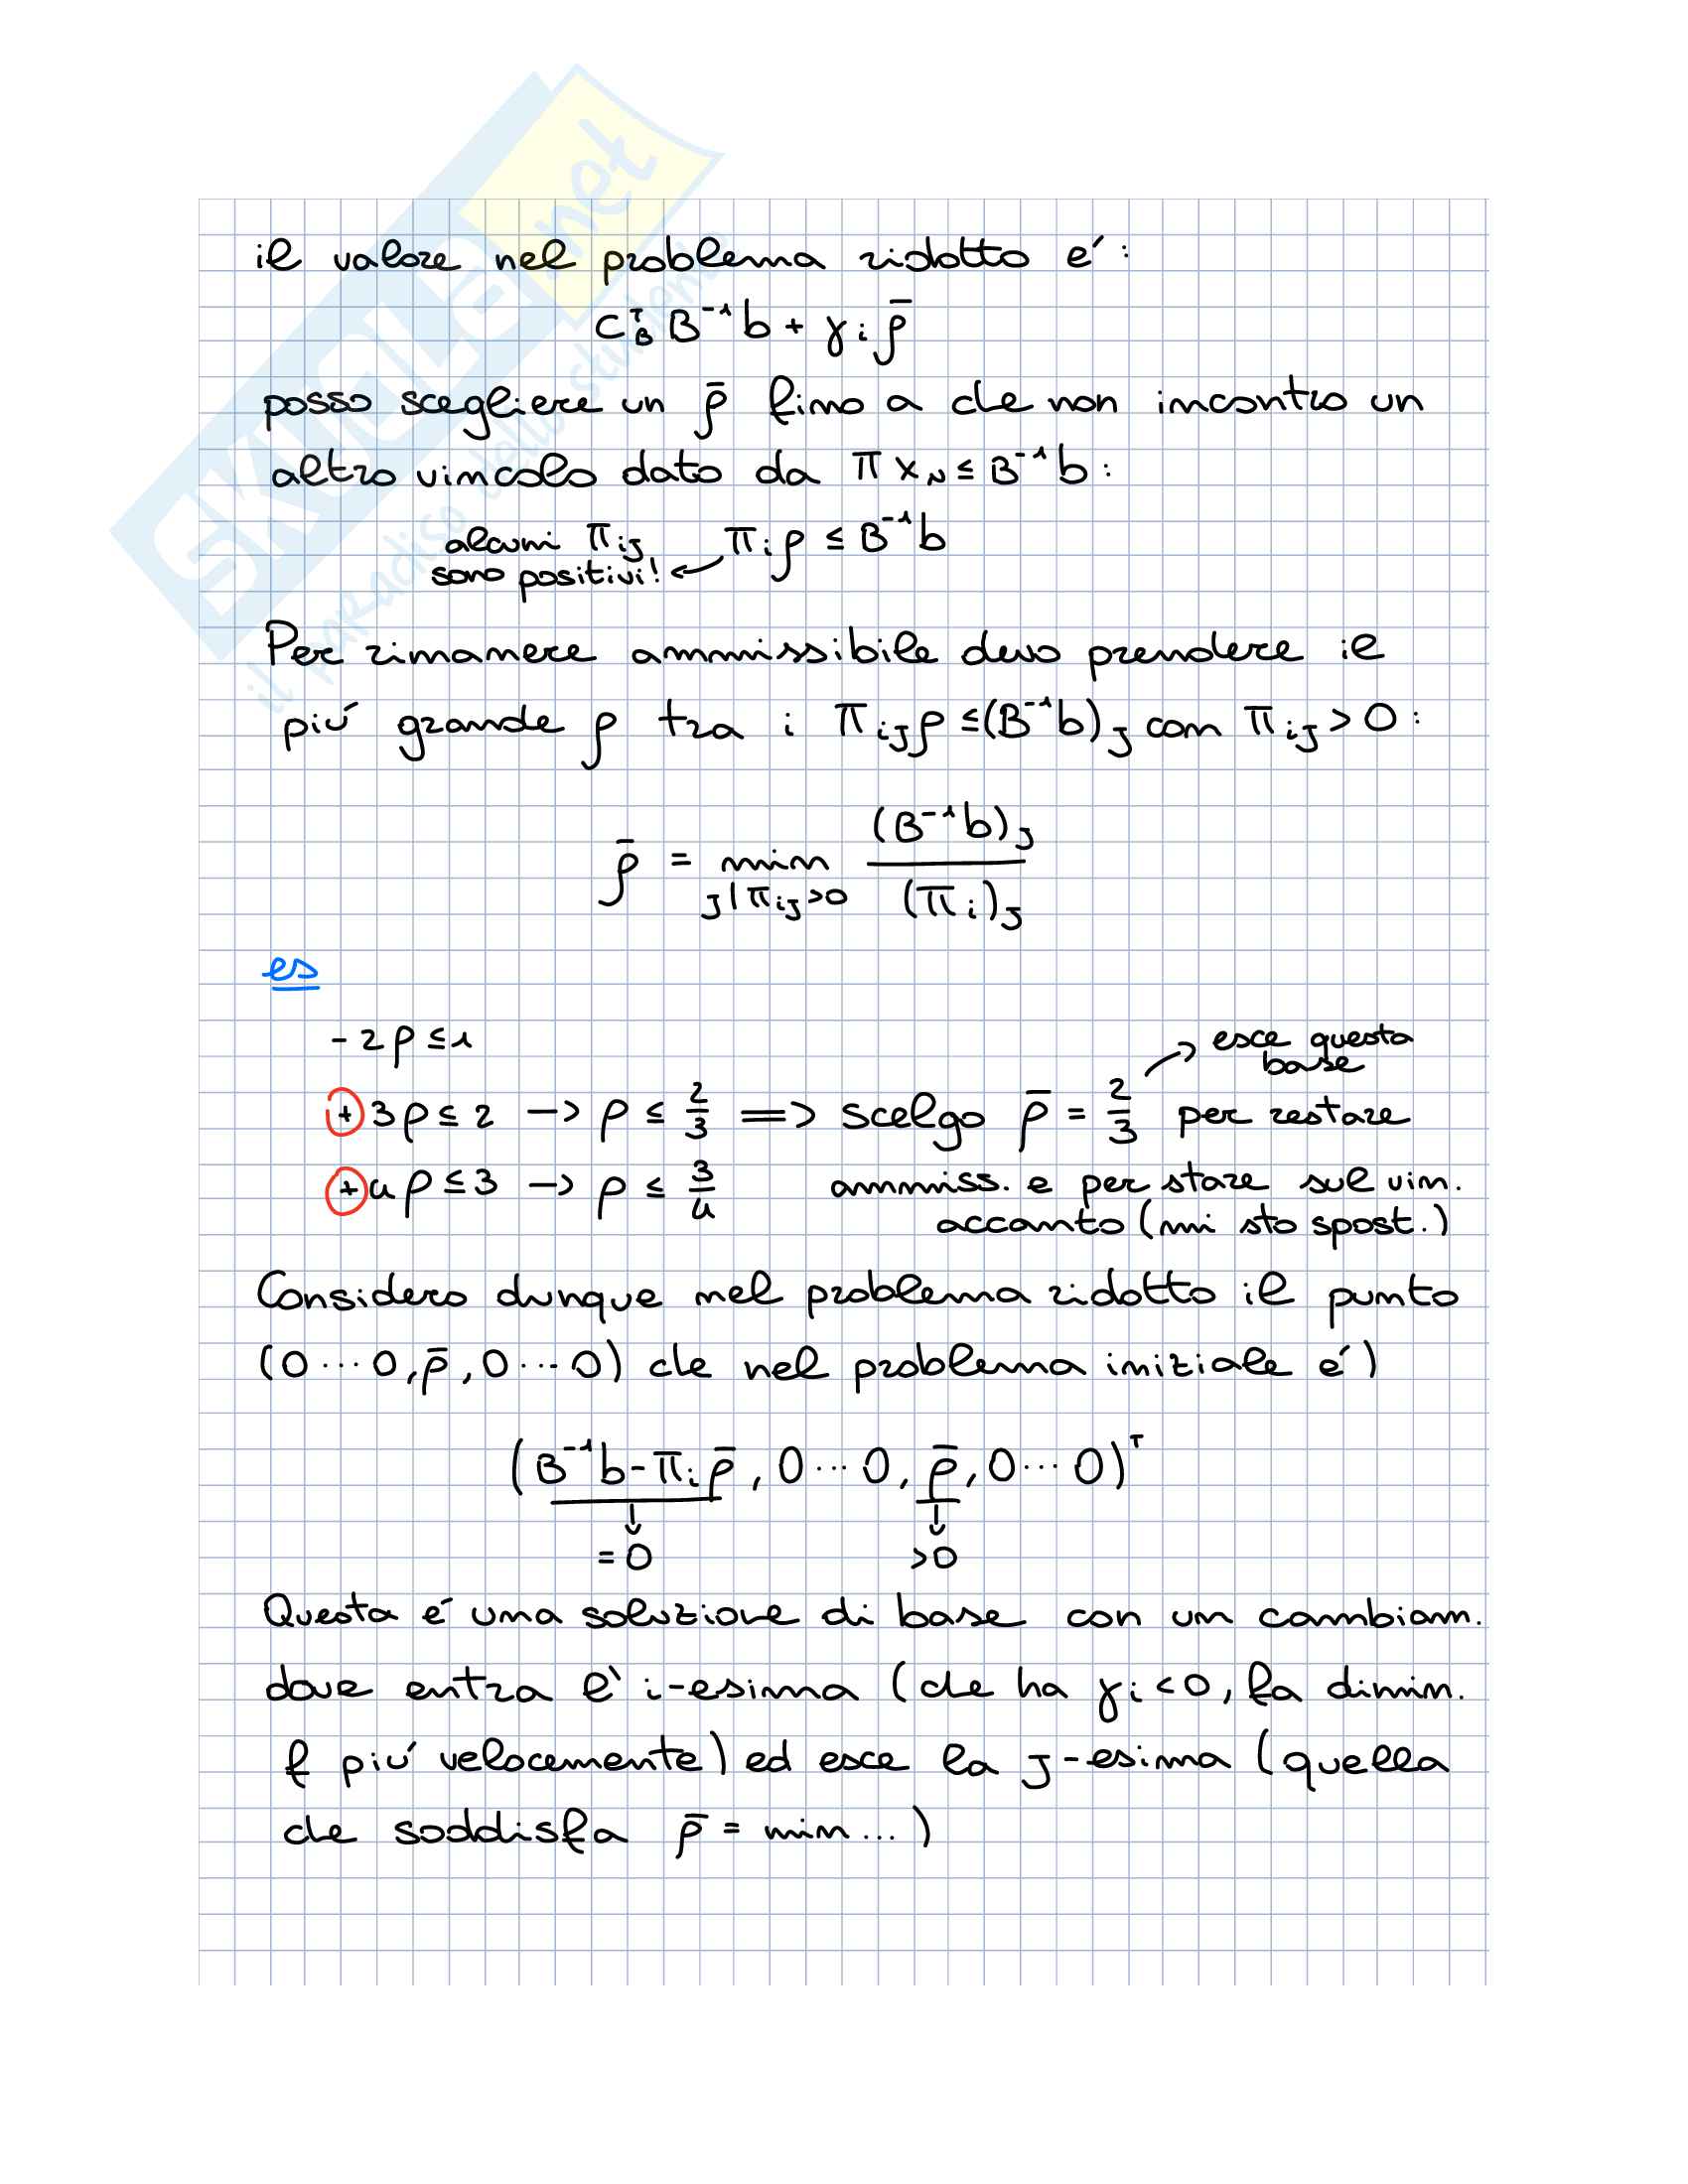 SKUOLA.net
il paradiso dello studente
il valore nel problema ridotto e':
C_B^T B⁻¹b + γᵢ ρ̄
posso scegliere un ρ̄ fino a che non incontro un
altro vincolo dato da π x_N ≤ B⁻¹b:
alcuni π_ij
sono positivi! ← πᵢρ ≤ B⁻¹b
Per rimanere ammissibile devo prendere il
più grande ρ tra i π_ij ρ ≤ (B⁻¹b)_j con π_ij > 0:
ρ̄ = min_{j | π_ij > 0} (B⁻¹b)_j / (πᵢ)_j
es
-2ρ ≤ 1
→ esce questa base
+3ρ ≤ 2 → ρ ≤ 2/3 ⟹ scelgo ρ̄ = 2/3 per restare
+4ρ ≤ 3 → ρ ≤ 3/4 ammiss. e per stare sul vin.
accanto (mi sto spost.)
Considero dunque nel problema ridotto il punto
(0 ··· 0, ρ̄, 0 ··· 0) che nel problema iniziale é)
(B⁻¹b - πᵢρ̄, 0 ··· 0, ρ̄, 0 ··· 0)ᵀ
↓ ↓
= 0 > 0
Questa é una soluzione di base con un cambiam.
dove entra l' i-esima (che ha γᵢ < 0, fa dimin.
f più velocemente) ed esce la j-esima (quella
che soddisfa ρ̄ = min ... )